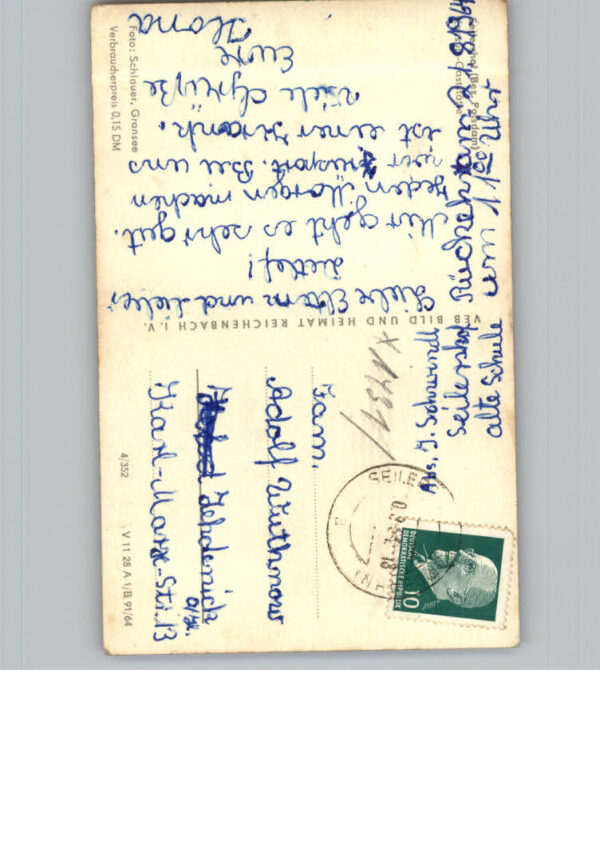 (Bez. Potsdam)
Liebe Eltern und lieber
Detlef!
Mir geht es sehr gut.
Jeden Morgen machen
wir Frühsport. Bei uns
ist einer krank.
Viele Grüße
Eure
Ilona
um 11 00 Uhr
Foto: Schlauer, Gransee
Verbraucherpreis 0,15 DM
VEB BILD UND HEIMAT REICHENBACH i. V.
Abs.
Seilershof
alte Schule
DEUTSCHE
DEMOKRATISCHE REPUBLIK
10
Fam.
Adolf Wuthnow
Zehdenick
Karl-Marx-Str. 13
4/352
V 11 28 A 1/B 91/64